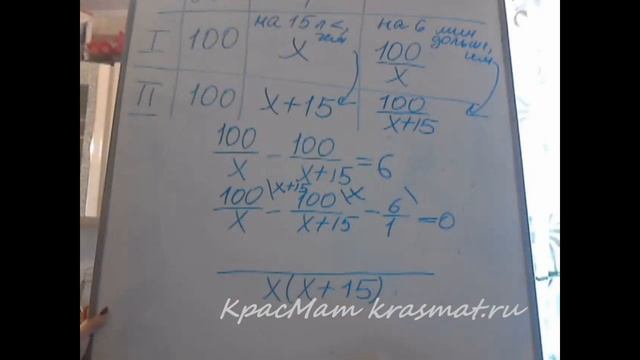 на 15 л <, чем
на 6 мин дольше, чем
I 100 x 100/x
II 100 x+15 100/(x+15)
100/x - 100/(x+15) = 6
100/x \x+15 - 100/(x+15) \x - 6/1 \ = 0
x(x+15)
КрасМат krasmat.ru